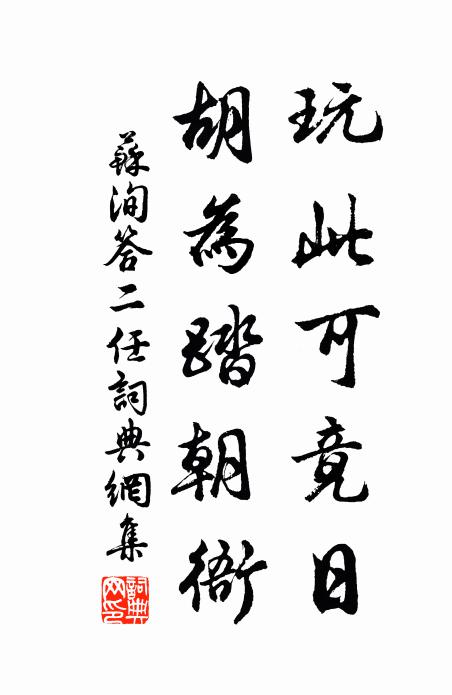 玩此可竟日
胡為踏朝衙
蘇洵答二任詞典網集
詞典網印